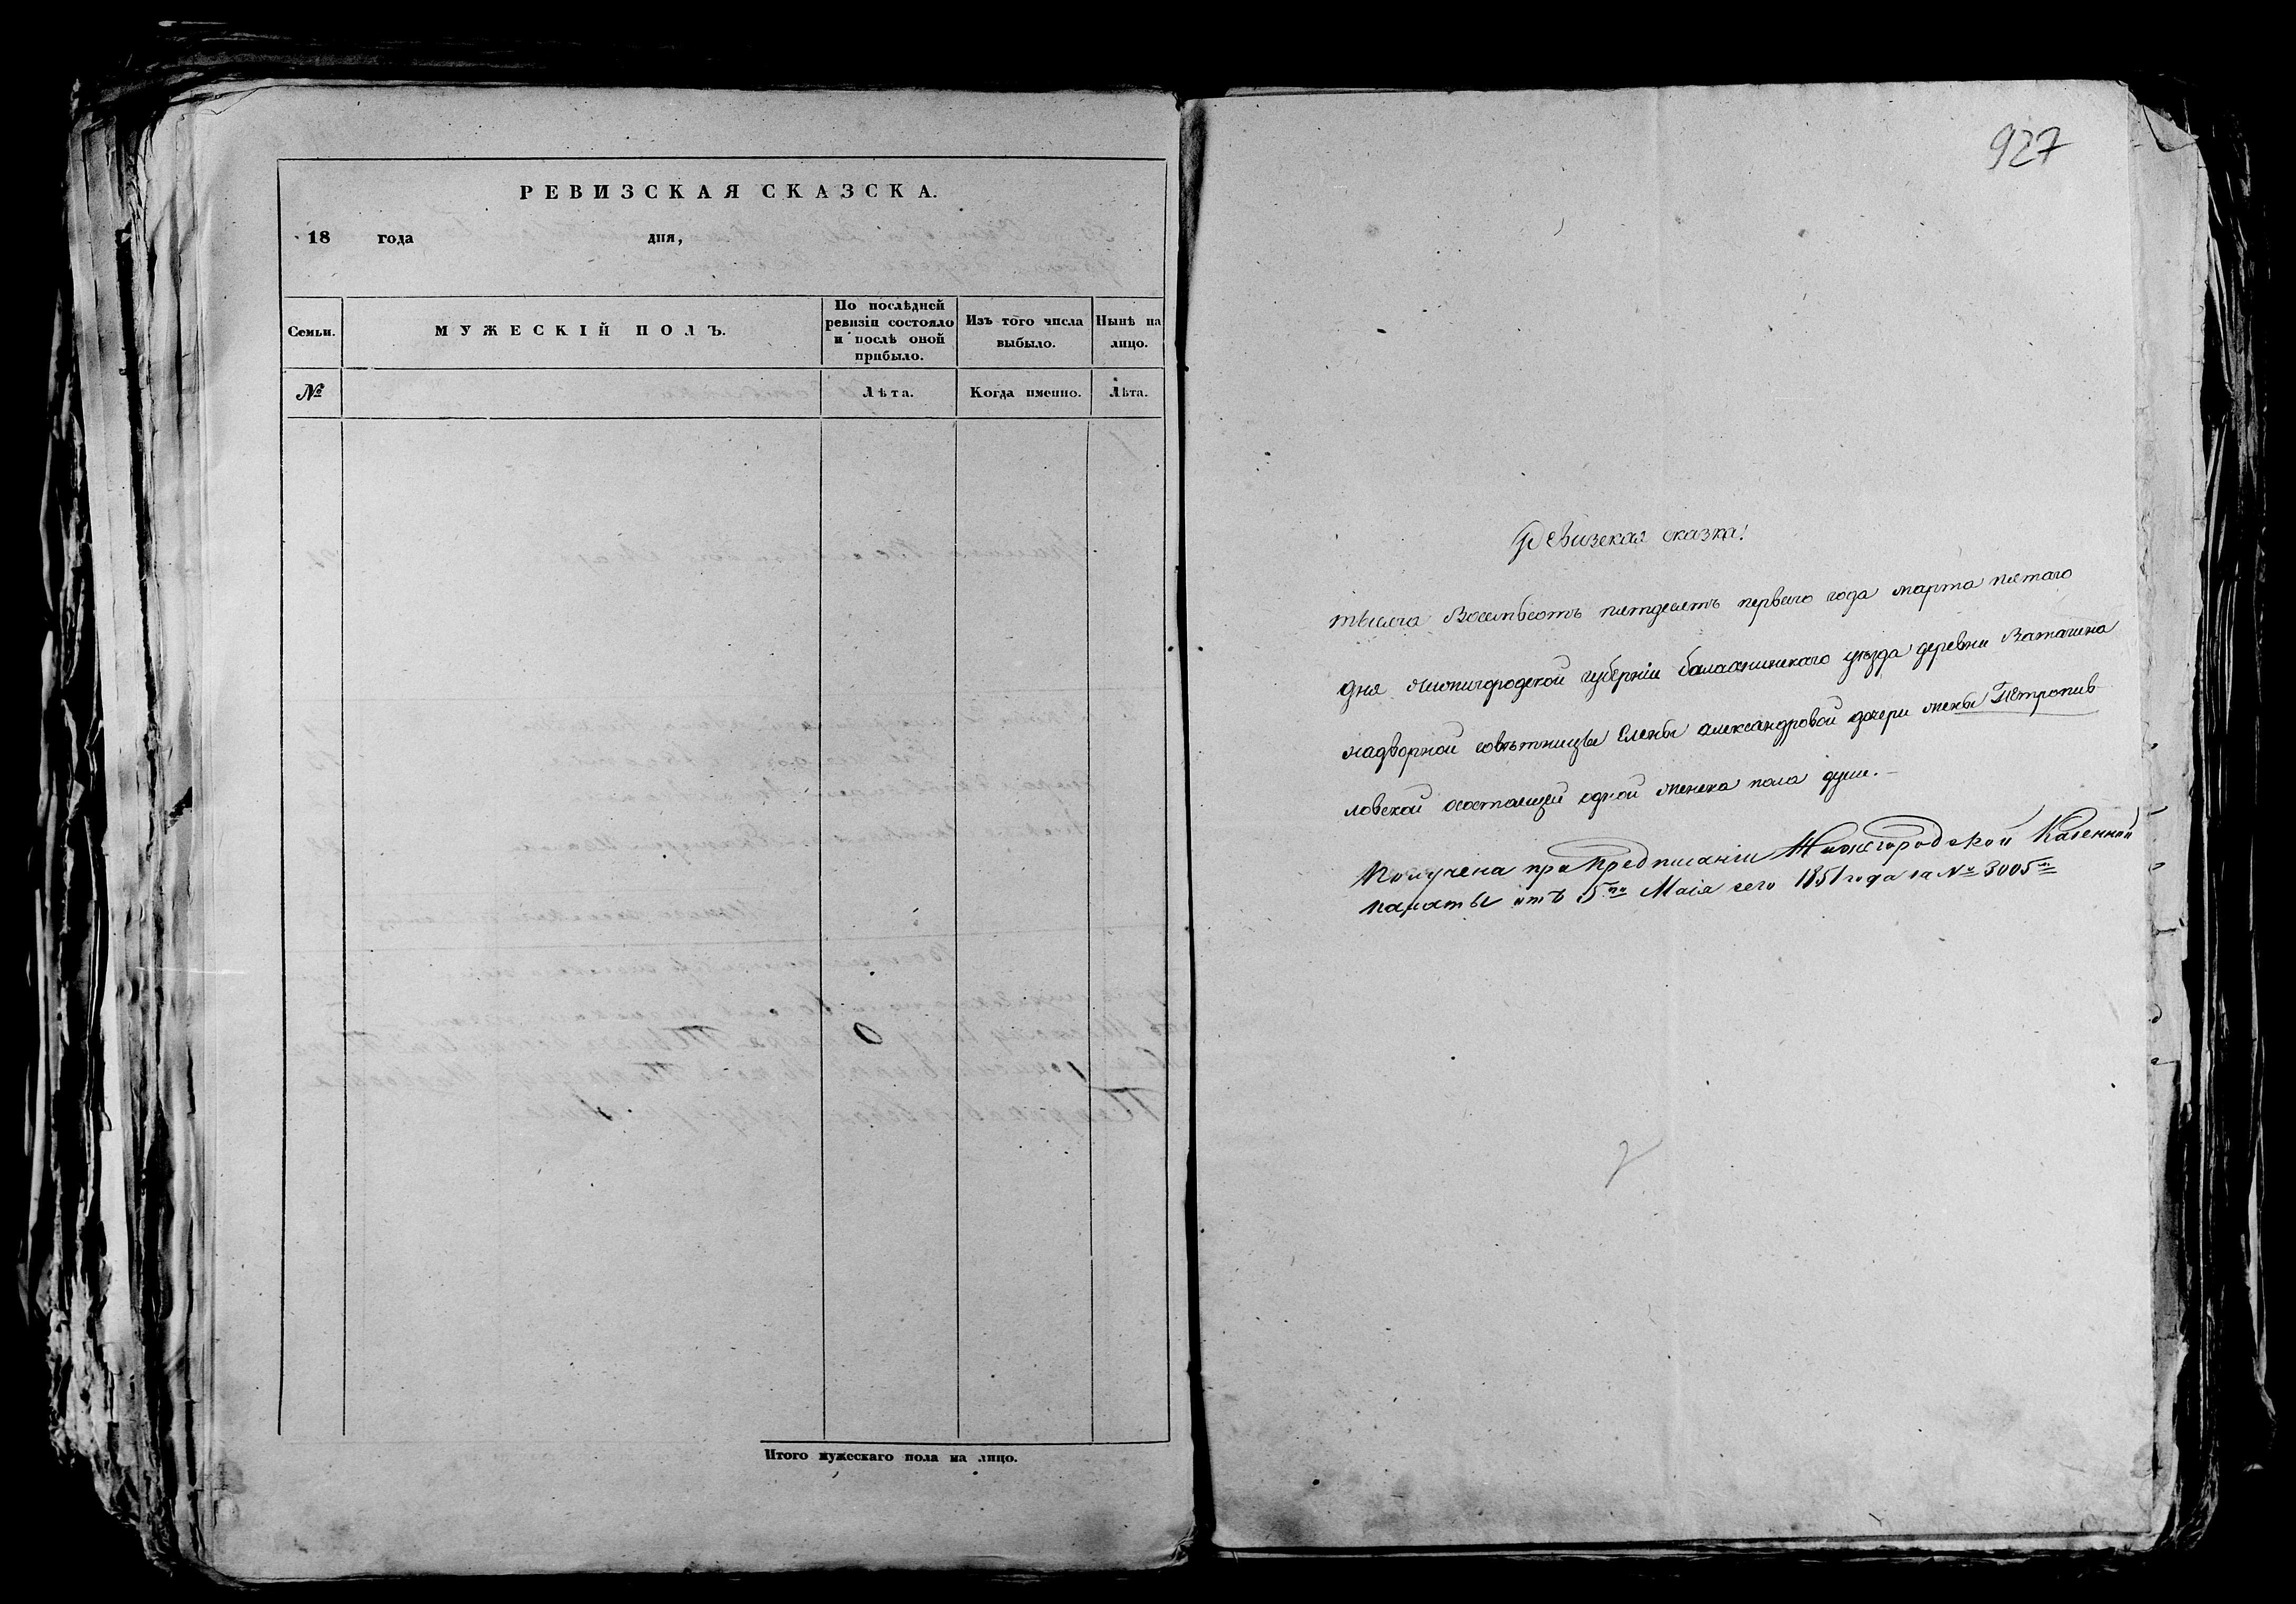 РЕВИЗСКАЯ СКАЗСКА.
18 года дня,
Семьи.
МУЖЕСКІЙ ПОЛЪ.
По послѣдней
ревизіи состояло
и послѣ оной
прибыло.
Изъ того числа
выбыло.
Нынѣ на
лицо.
№
Лѣта.
Когда именно.
Лѣта.
Итого мужескаго пола на лицо.
927
Ревизская сказка!
тысяча Восемьсотъ пятдесятъ перваго года марта пятаго
дня нижигородской губерніи балахнинскаго уѣзда деревни Ватагина
надворной совѣтницы Елены александровой дочери жены Петропив
ловской осостоящей одной женска пола души.
Получена при Предписаніи Нижегородской Казенной
палаты отъ 5го Маія сего 1851 года за № 3005м